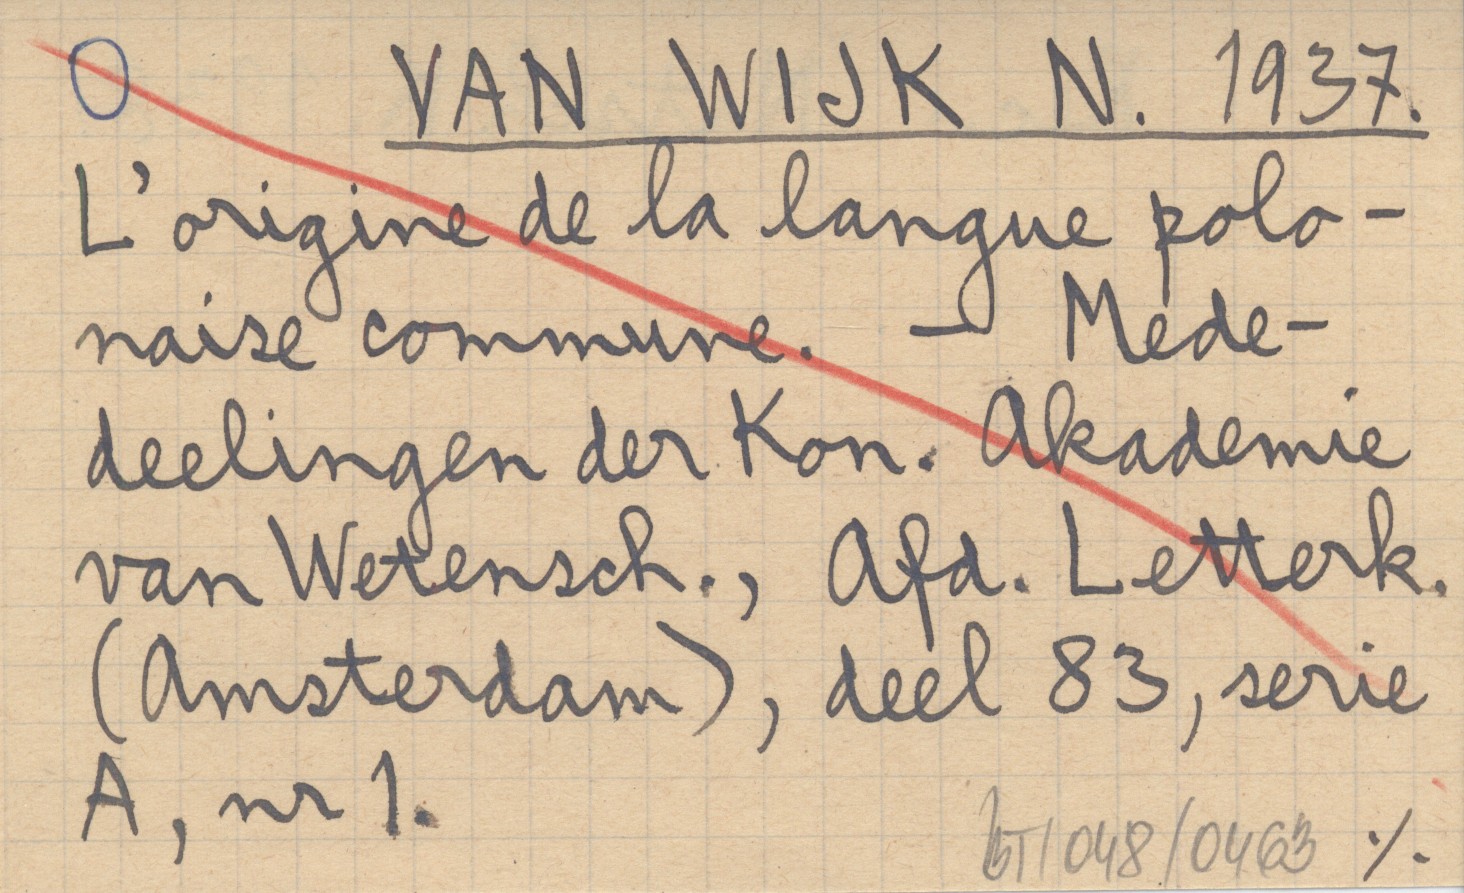 O VAN WIJK N. 1937.
L'origine de la langue polo-
naise commune. - Mede-
deelingen der Kon. Akademie
van Wetensch., Afd. Letterk.
(Amsterdam), deel 83, serie
A, nr 1.
BT/048/0463 ./.